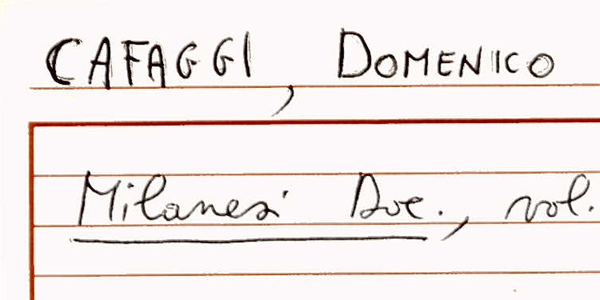 CAFAGGI, DOMENICO
Milanesi Doc., vol.